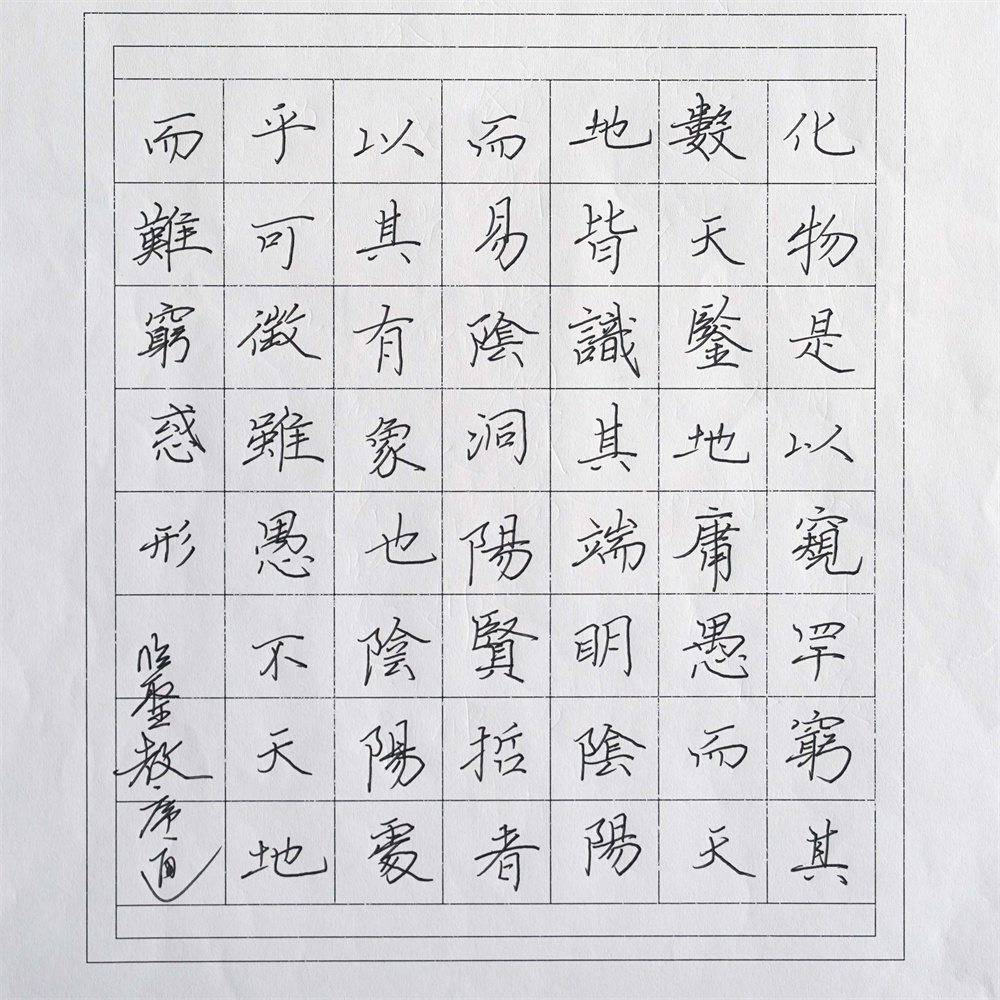 化物是以窺罕窮其
數天鑒地庸愚而天
地皆識其端明陰陽
而易陰洞陽賢哲者
以其有象也陰陽處
乎可徵雖愚不天地
而難窮惑形
臨聖教序一通